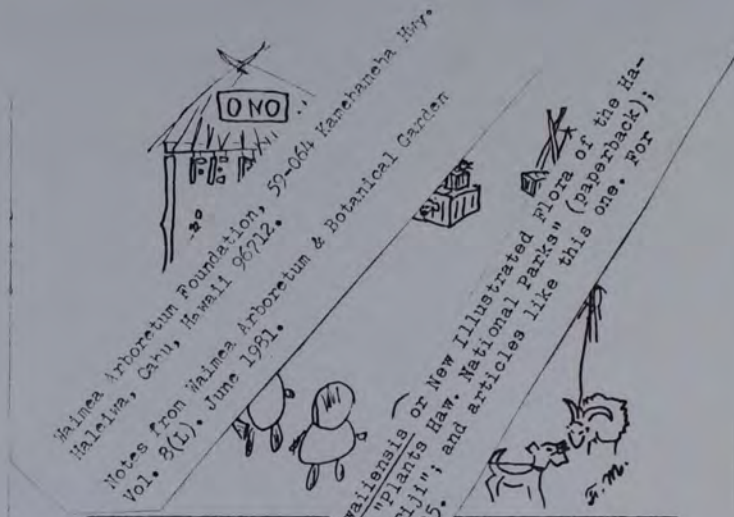 ONO
Waimea Arboretum Foundation, 59-064 Kamehameha Hwy.
Haleiwa, Oahu, Hawaii 96712.
Notes from Waimea Arboretum & Botanical Garden
Vol. 8(1). June 1981.
waiiensis or New Illustrated Flora of the Ha-
"Plants Haw. National Parks" (paperback);
iji"; and articles like this one. For
5.
F.M.